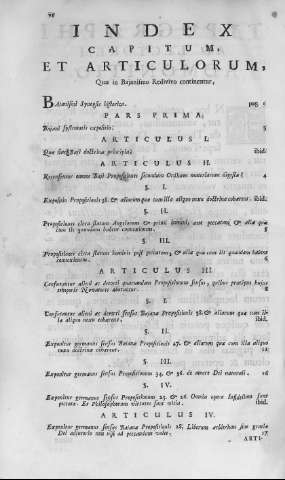 INDEX
CAPITUM,
ET ARTICULORUM,
Quæ in Bajanismo Redivivo continentur,
Baianismi Synopsis historica. pag. 1
PARS PRIMA;
Bajani systematis expositio. 3
ARTICULUS I.
Quæ sint Baji doctrinæ principia; ibid.
ARTICULUS II.
Recensentur omnes Baji Propositiones secundum Ordinem materiarum digestæ; 4
§. I.
Expositio Propositionis 38. & aliarum quæ cum illa aliquo modo cohærent. ibid.
§. II.
Propositiones circa statum Angelorum & primi hominis, ante peccatum, & aliæ quæ
cum iis quandam habent connexionem. 5
§. III.
Propositiones circa statum hominis post peccatum, & aliæ quæ cum iis quandam habent
connexionem. 6
ARTICULUS III
Confutatur alieni ac detorti quarundam Propositionum sensus, quibus præsens hujus
temporis Novatores abutuntur. 8
§. I.
Confutantur alieni ac detorti sensus Baianæ Propositionis 38. & aliarum quæ cum il-
la aliquo modo cohærent. ibid.
§. II.
Exponitur germanus sensus Baianæ Propositionis 47. & aliarum quæ cum illa aliquo
modo doctrina cohærent. 12
§. III.
Exponitur germanus sensus Propositionum 34. & 36. de amore Dei naturali. 16
§. IV.
Exponitur germanus sensus Propositionum 25. & 26. Omnia opera Infidelium sunt
peccata. Et Philosophorum virtutes sunt vitia. ibid.
ARTICULUS IV.
Exponitur germanus sensus Baianæ Propositionis 28. Liberum arbitrium sine gratia
Dei adjutorio non nisi ad peccandum valet. 17
ARTI-